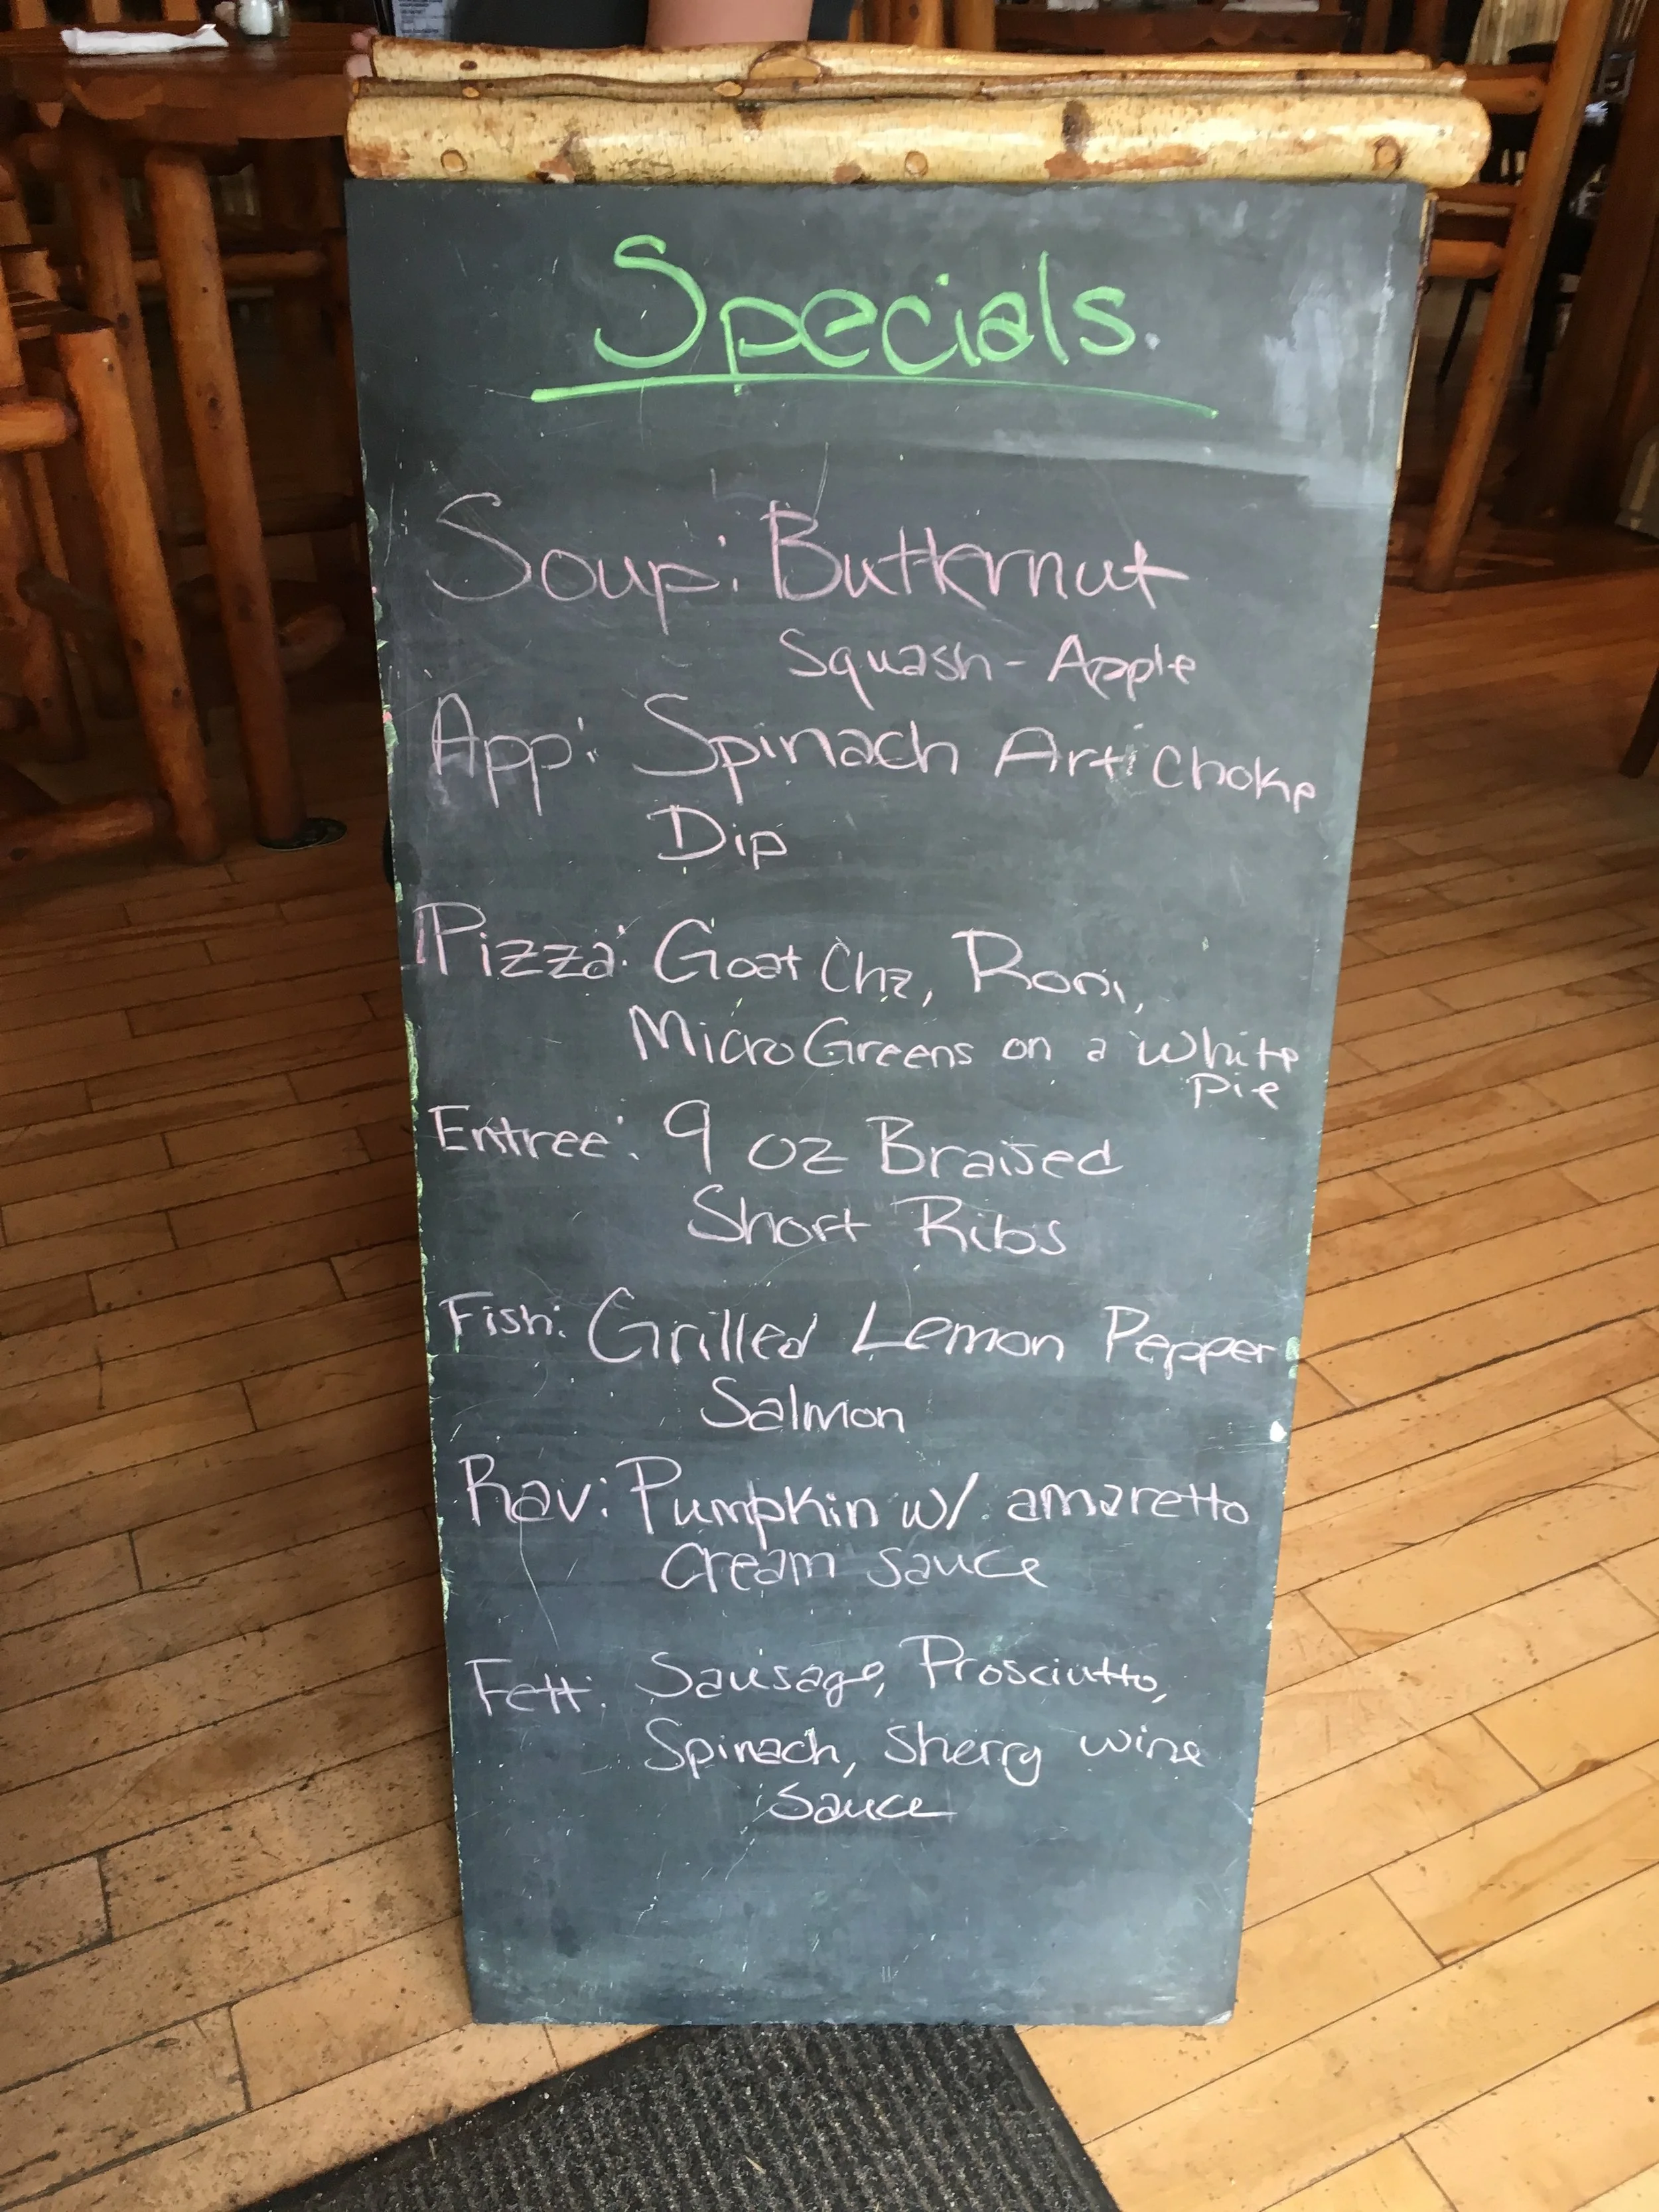 Specials
Soup: Butternut
Squash-Apple
App: Spinach Artichoke
Dip
Pizza: Goat Chz, Roni,
MicroGreens on a white
pie
Entree: 9 oz Braised
Short Ribs
Fish: Grilled Lemon Pepper
Salmon
Rav: Pumpkin w/ amaretto
cream sauce
Fett: Sausage, Prosciutto,
Spinach, Sherry wine
Sauce